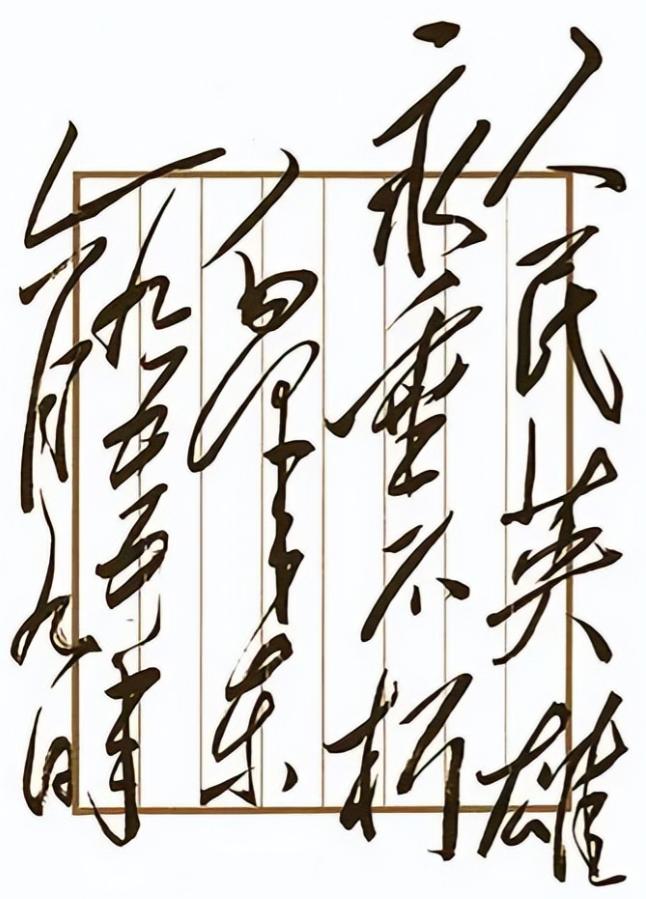 人民英雄
永垂不朽
泽东
一九五五年
六月九